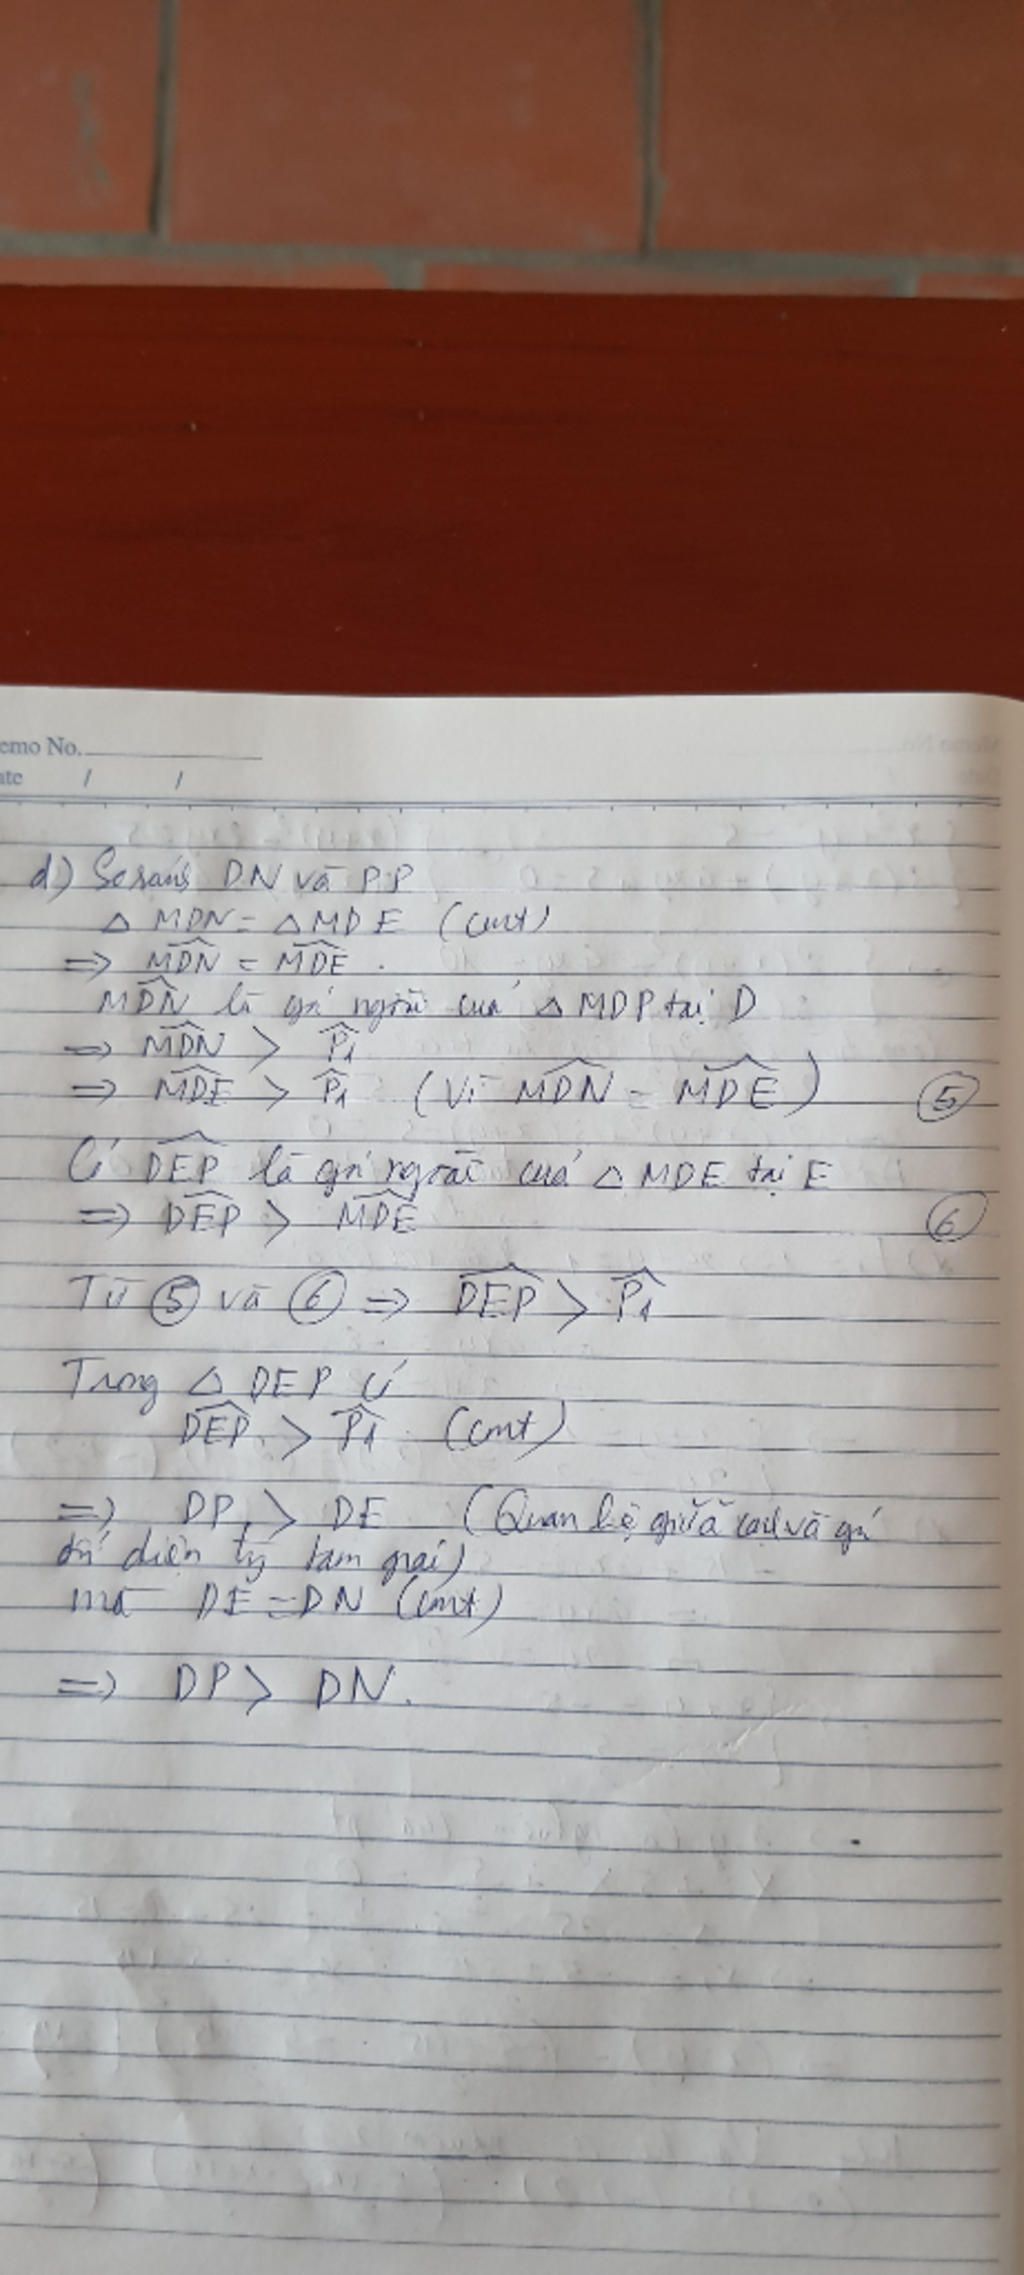 emo No.
ate / /
d) So sánh DN và DP
△ MDN = △ MDE (cmt)
⇒ MDN̂ = MDÊ.
MDN̂ là góc ngoài của △ MDP tại D
⇒ MDN̂ > P̂₁
⇒ MDÊ > P̂₁ (Vì MDN̂ = MDÊ) ⑤
Có DEP̂ là góc ngoài của △ MDE tại E
⇒ DEP̂ > MDÊ ⑥
Từ ⑤ và ⑥ ⇒ DEP̂ > P̂₁
Trong △ DEP có
DEP̂ > P̂₁ (cmt)
⇒ DP > DE (Quan hệ giữa cạnh và góc
đối diện tg tam giác)
mà DE = DN (cmt)
⇒ DP > DN.